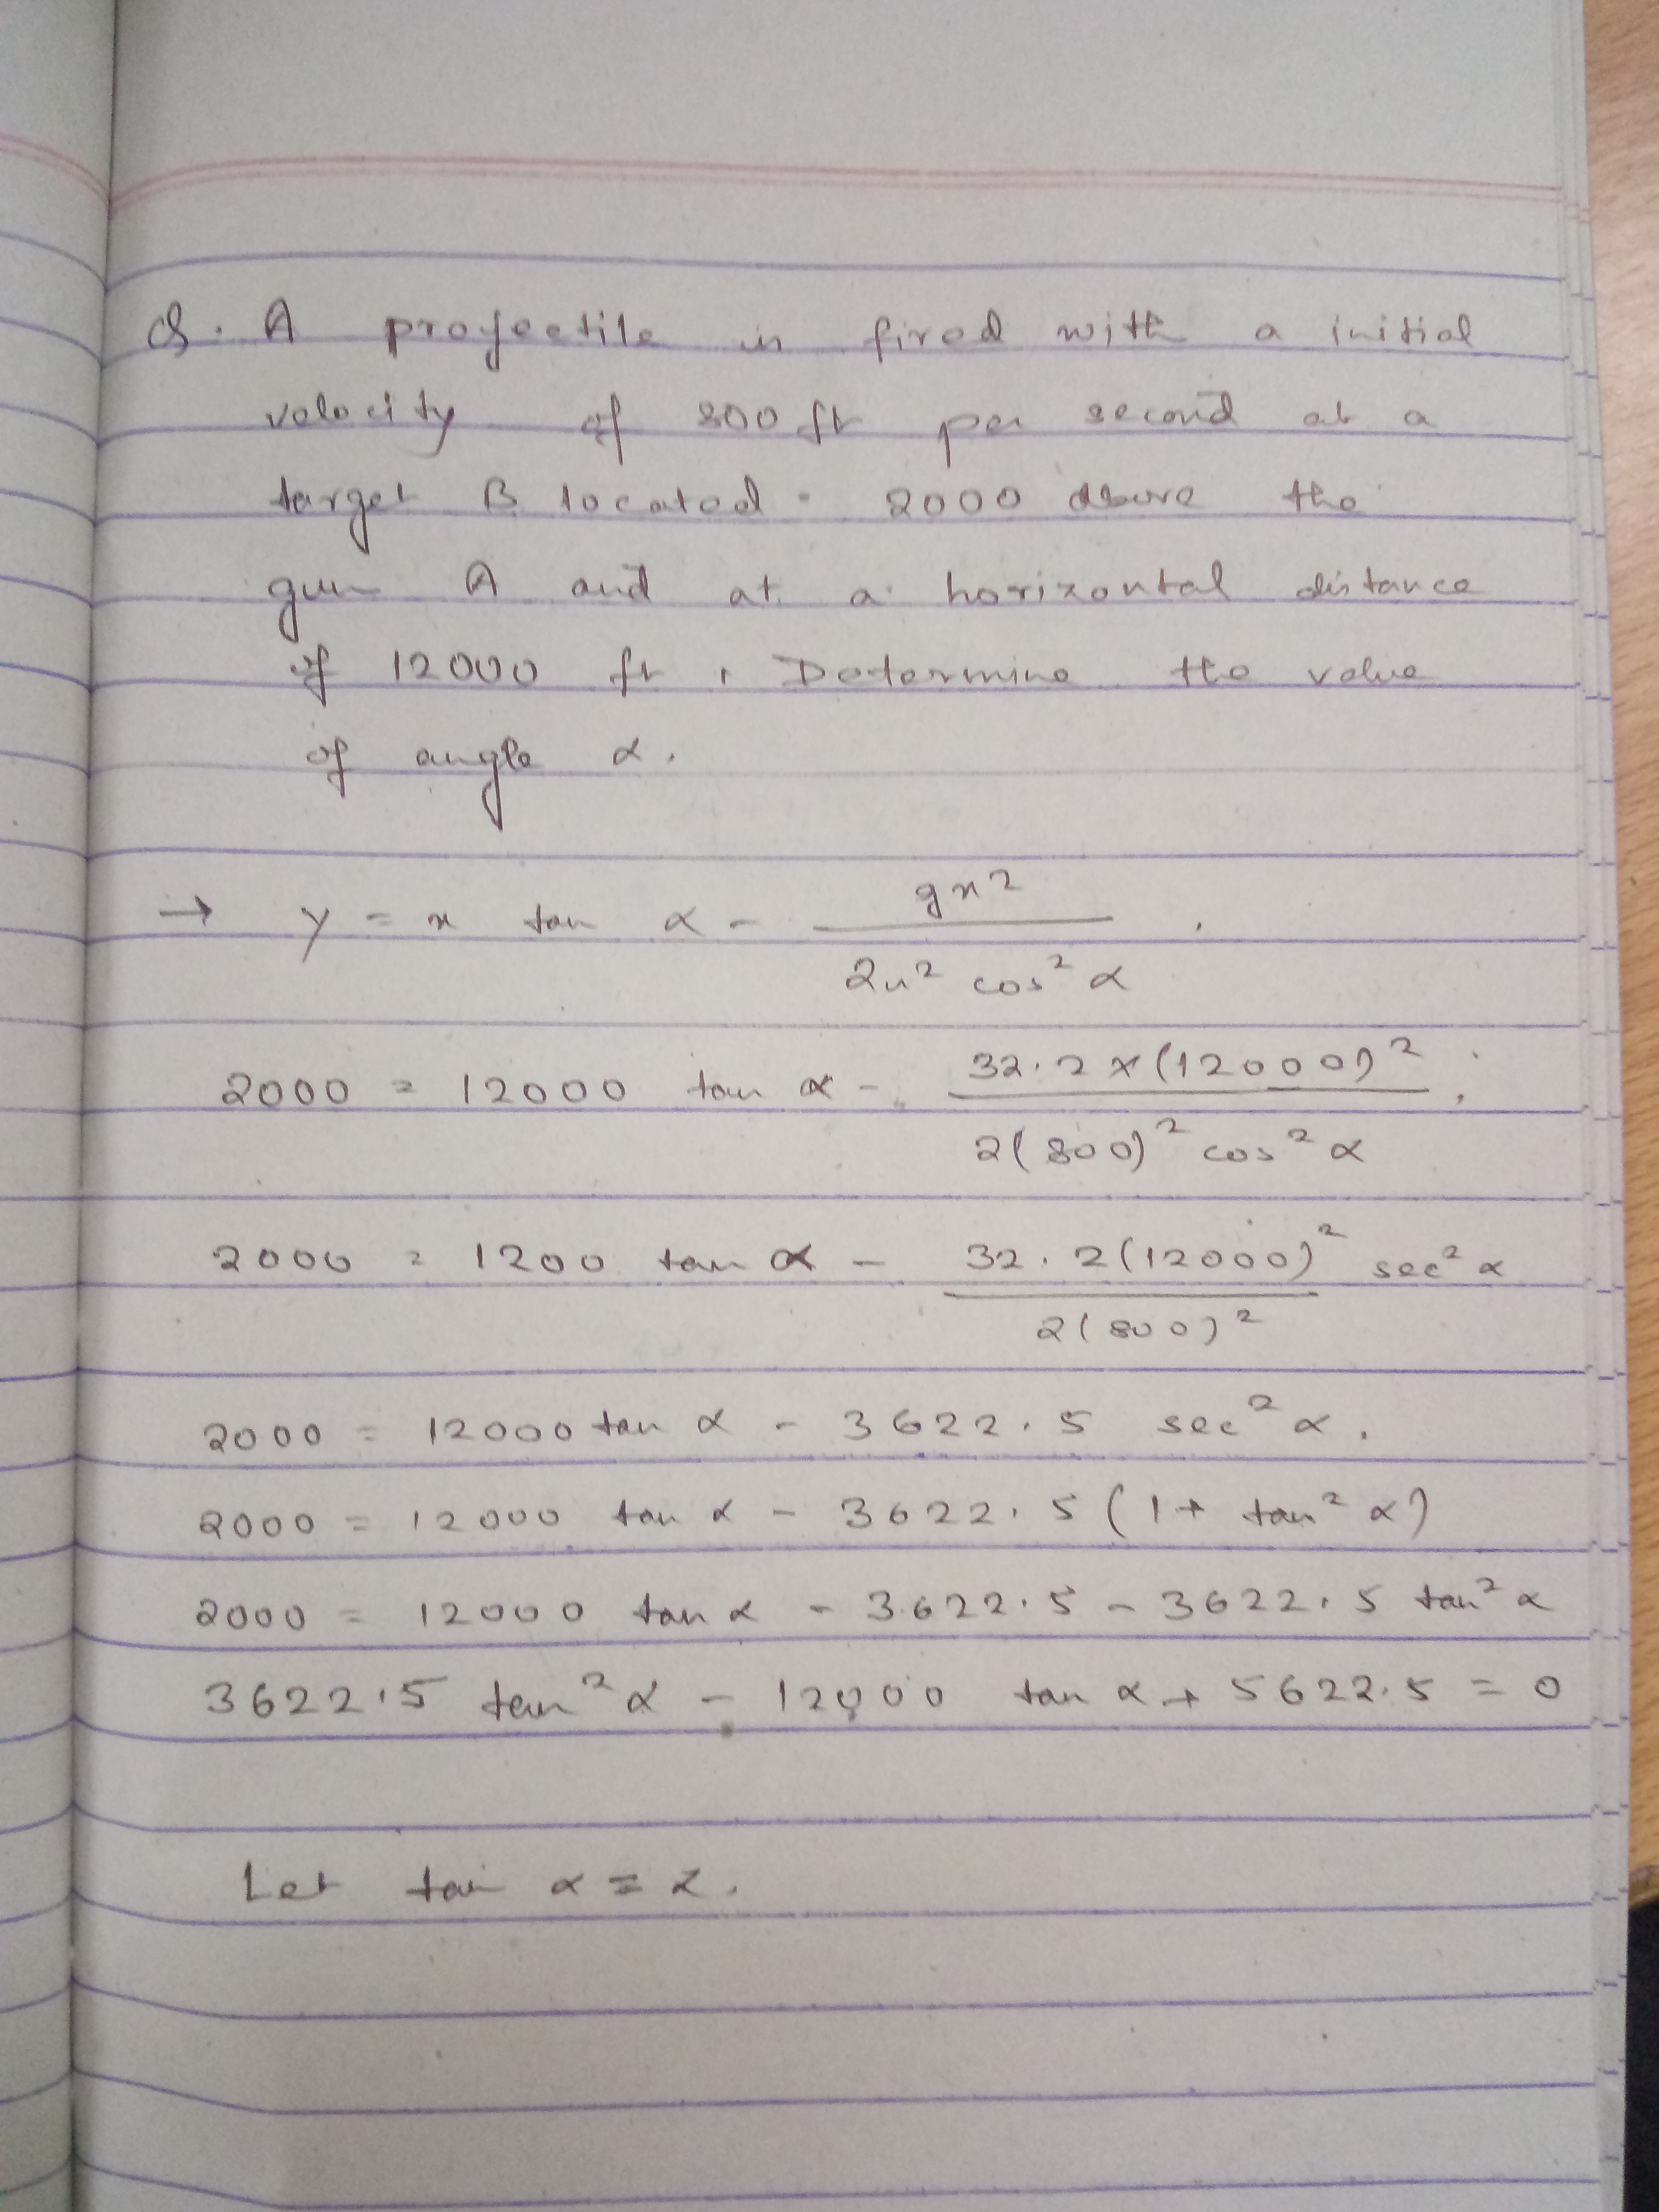 Q. A projectile is fired with a initial
velocity of 800 ft per second at a
target B located 2000 above the
gun A and at a horizontal distance
of 12000 ft. Determine the value
of angle α.
→ y = x tan α - gx² / 2u² cos² α
2000 = 12000 tan α - 32.2 x (12000)² / 2(800)² cos² α
2000 = 1200 tan α - 32.2(12000)² / 2(800)² sec² α
2000 = 12000 tan α - 3622.5 sec² α.
2000 = 12000 tan α - 3622.5 (1 + tan² α)
2000 = 12000 tan α - 3622.5 - 3622.5 tan² α
3622.5 tan² α - 12000 tan α + 5622.5 = 0
Let tan α = z.